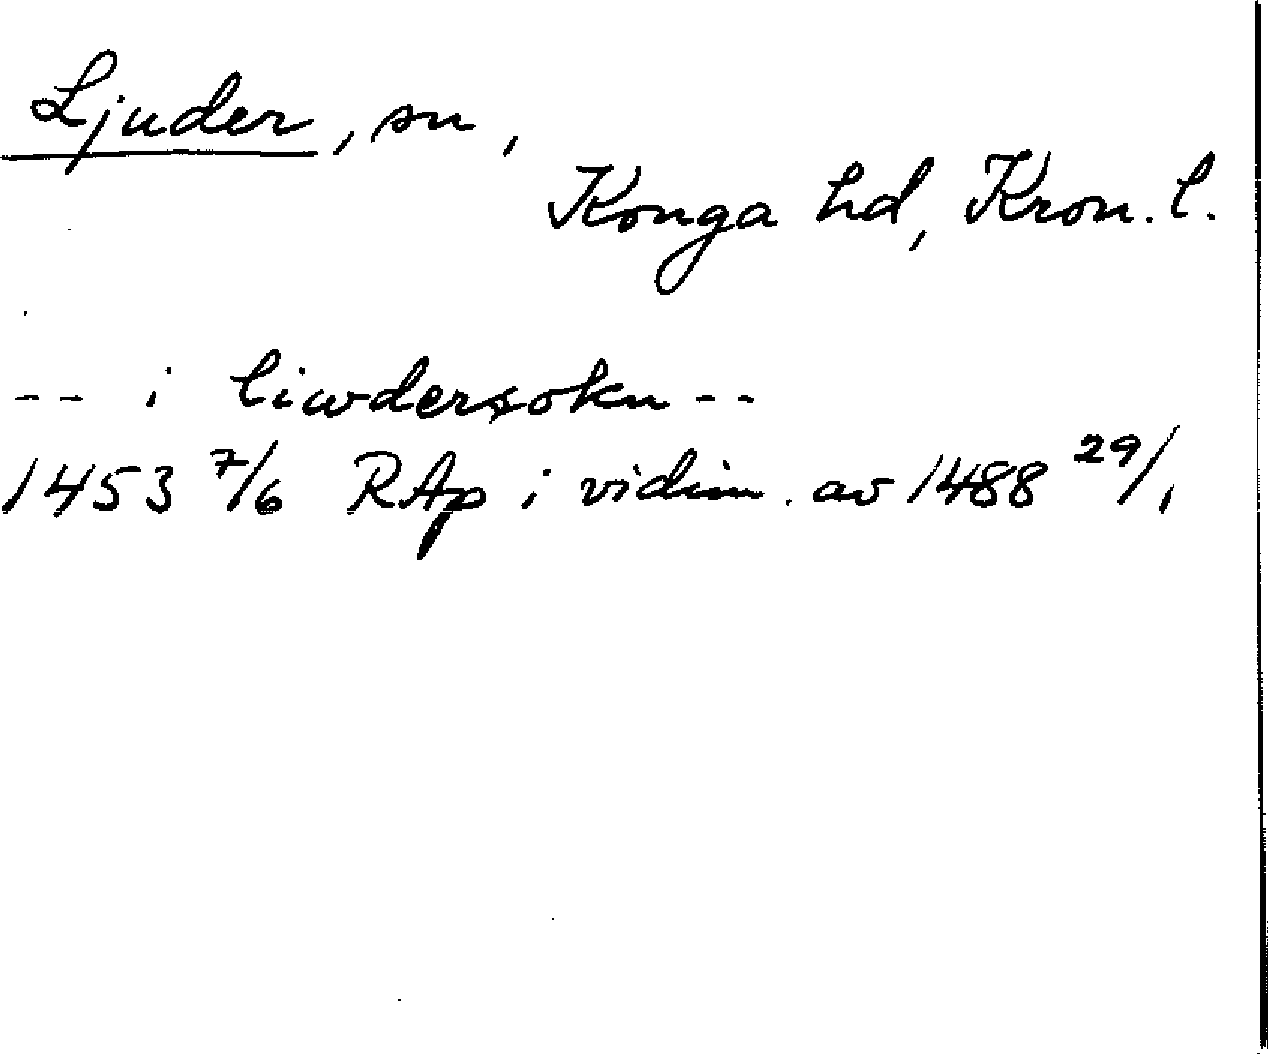 Ljuder, sn,
Konga hd, Kron. l.
-- i liwdersokn --
1453 7/6 RAp i vidim. av 1488 29/1